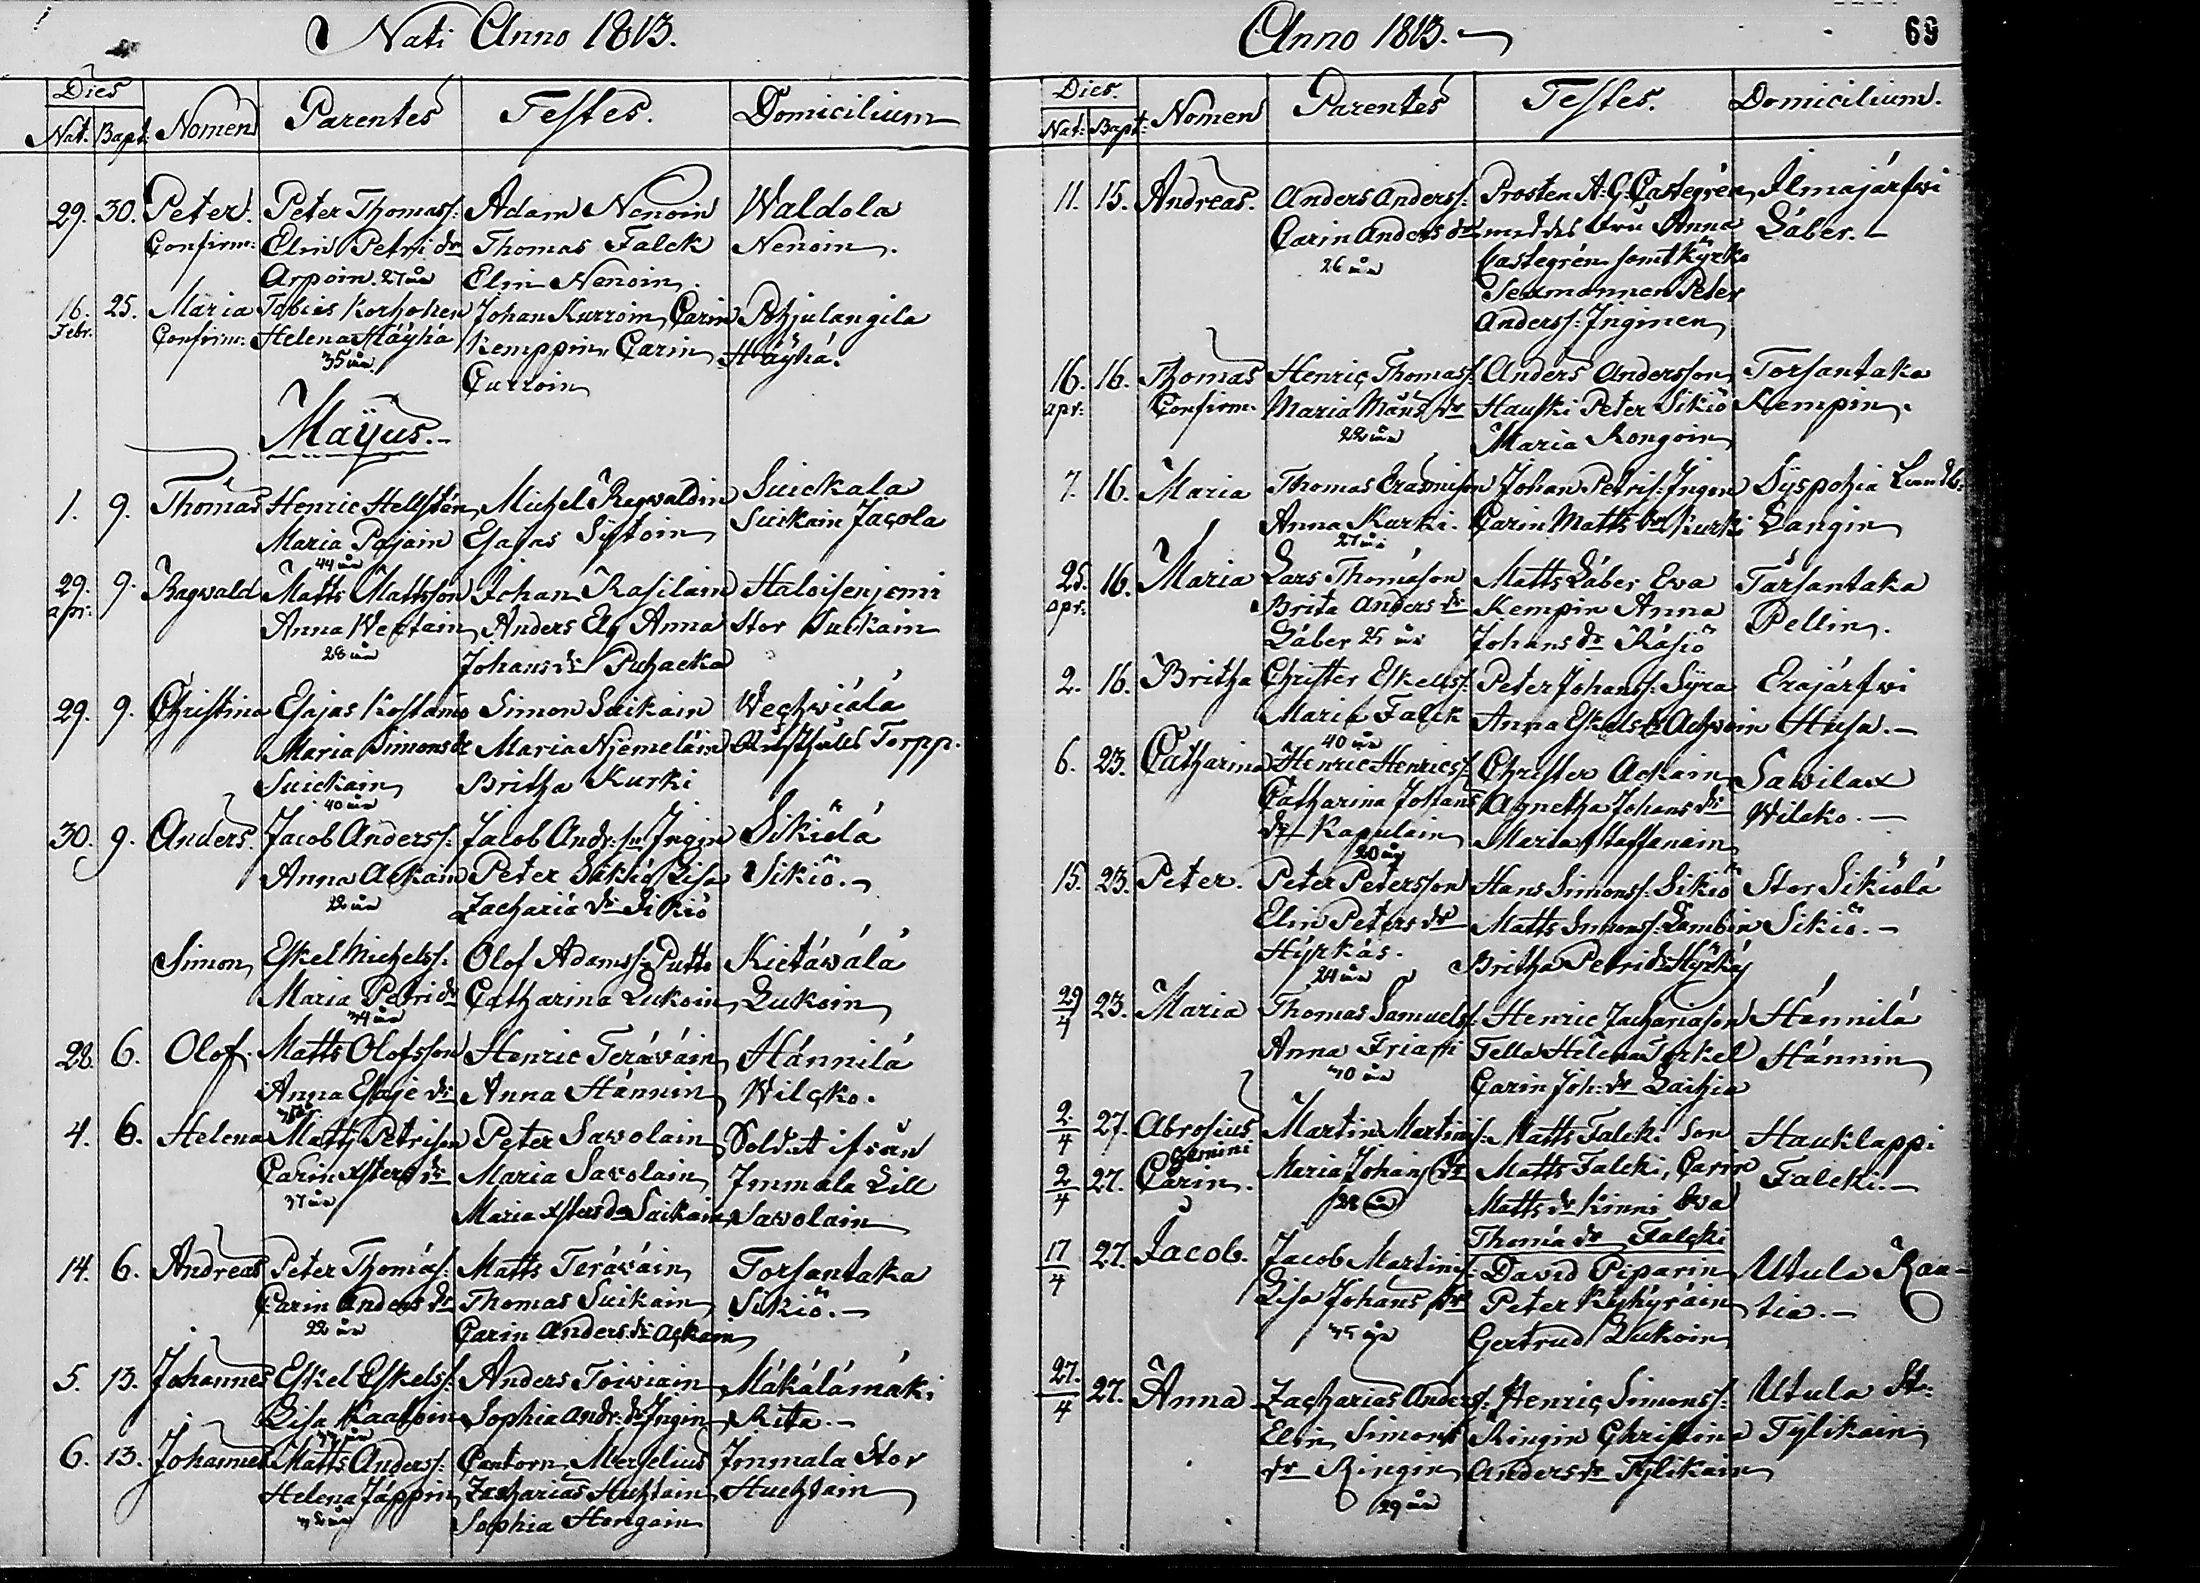 Nati Anno 1813.
Dies
Nat. Bapt. Nomen Parentes Testes. Domicilium
29. 30. Peter. Peter Thomass: Adam Nenoin Waldola
Confirm: Elin Petri dr Thomas Falck Nenoin.
Arpoin. 27 år Elin Nenoin.
16. 25. Maria Tobias Korhonen Johan Kurroin, Carin Pohjulangila
Febr. Confirm: Helena Häyhä Kemppin, Carin Häyhä.
35 år Curroin
Mayus.
1. 9. Thomas Henric Hellstén Michel Regwaldin Suickala
Maria Pajain Esajas Systoin Suikain Jacola
44 år
29. 9. Ragwald Matts Mattsson Johan Rasilain Haloisenjemi
apr: Anna Wertain Anders Anna Stor Suikain
28 år Johans dr Puhacka
29. 9. Christina Esajas Kostamo Simon Suikain Wechwiälä
Maria Simons dr Maria Njemeläin Torpp.
Suickain Britha Kurki
40 år
30. 9. Anders. Jacob Anderss: Jacob Andr: sn Ingin Sikiölä
Anna Ackain Peter Sikiö Lisa Sikiö.
22 år Zacharia dr Sikiö
Simon Eskel Michelss: Olof Adamss: Putto Kietäwälä
Maria Petri dr Catharina Lukoin Lukoin
34 år
28. 6. Olof. Matts Olofsson Henric Teräwäin Hännilä
Anna Esaje dr Anna Hännin Wilcko.
4. 6. Helena Matts Petrison Peter Sawolain Soldat ifrån
Carin Xsters dr Maria Sawolain Immala Lill
37 år Maria Xsters dr Suikain Sawolain
14. 6. Andreas Peter Thomas: Matts Teräwäin Torsantaka
Carin Anders dr Thomas Suikain Sikiö.
22 år Carin Anders dr Ackain
5. 13. Johannes Eskel Eskelss: Anders Toiwiain Mäkälämäki
Lisa Kaaloin Sophia Andr: dr Ingin Rita.
6. 13. Johannes Matts Anderss: Cantorn Merselius Immala Stor
Helena Jäppin Zacharias Huchtain Huchtain
Sophia Hongain
Anno 1813.
69
Dies.
Nat: Bapt: Nomen Parentes Testes. Domicilium.
11. 15. Andreas. Anders Anderss: Prosten A: G: Castegrén Ilmajärfwi
Carin Anders dr med des Fru Anna Läber.
26 år Castegrén samt Kyrko
Sexmannen Peter
Anderss: Inginen
16. 16. Thomas Henric Thomass: Anders Andersson Torsantaka
apr: Confirm. Maria Måns dr Hauski Peter Sikiö Kempin.
22 år Maria Rongoin
7. 16. Maria Thomas Erasmison Johan Petris: Ingin Syspohia Landb:
Anna Kurki. Carin Matts dr Kurki Langin
27 år
25. 16. Maria Lars Thomason Matts Läber Ewa Tarsantaka
apr: Brita Anders dr Kempin Anna Pellin.
Läber 25 år Johans dr Räsiö
2. 16. Britha Christer Eskelss: Peter Johanss: Syra Erajärfwi
Maria Falck Anna Eskels dr Achwoin Husa.
40 år
6. 23. Catharina Henric Henrics: Christer Ackain Sawilax
Catharina Johans Agnetha Johans dr Wilako.
dr Kapulain Maria Staffanain
20 år
15. 23. Peter. Peter Petersson Hans Simonss: Sikiö Stor Sikiölä
Elin Peters dr Matts Simonss: Lambin Sikiö.
Hyrkäs. Britha Petri dr Hyrkäs
24 år
29/4 23. Maria Thomas Samuels: Henric Zachariason Hännilä
Anna Friari Tella Helena Torkel Hännin
30 år Carin Joh: dr Laihia
2/4 27. Abrosius Martin Martins: Matts Falcki Son Hauklappi
Gemini
2/4 27. Carin. Maria Johans dr Matts Falcki, Carin Falcki.
28 år Matts dr Kinni Ewa
Thoma dr Falcki
17/4 27. Jacob. Jacob Martins: David Piparin Utula Rau-
Lisa Johans dr Peter Kyhyräin tia.
35 år Gertrud Lukoin
27./4 27. Anna Zacharias Anders: Henric Simonss: Utula St:
Elin Simons Ringin Christina Tylikain
dr Ringin Anders dr Tylikain
29 år